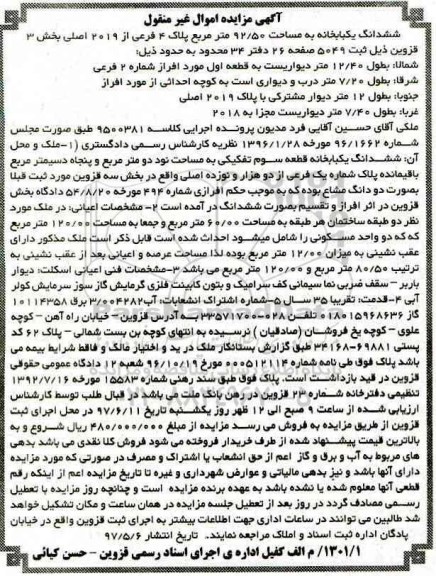 آگهی مزایده اموال غیر منقول
ششدانگ یکبابخانه به مساحت ۹۲/۵۰ متر مربع پلاک ۴ فرعی از ۲۰۱۹ اصلی بخش ۳
قزوین ذیل ثبت ۵۰۴۹ صفحه ۲۶ دفتر ۳۴ محدود به حدود ذیل:
شمالا: بطول ۱۲/۴۰ متر دیواریست به قطعه اول مورد افراز شماره ۲ فرعی
شرقا: بطول ۷/۲۰ متر درب و دیواری است به کوچه احداثی از مورد افراز
جنوبا: بطول ۱۲ متر دیوار مشترکی با پلاک ۲۰۱۹ اصلی
غربا: بطول ۷/۴۰ متر دیواریست مجزا به ۲۰۱۸
ملکی آقای حسین آقایی فرد مدیون پرونده اجرایی کلاسه ۹۵۰۰۳۸۱ طبق صورت مجلس
شماره ۹۶/۱۶۶۲ مورخ ۱۳۹۶/۱/۲۸ نظریه کارشناس رسمی دادگستری (۱-ملک و محل
آن: ششدانگ یکبابخانه قطعه سوم تفکیکی به مساحت نود دو متر مربع و پنجاه دسیمتر مربع
باقیمانده پلاک شماره یک فرعی از دو هزار و نوزده اصلی واقع در بخش سه قزوین مورد ثبت قبلا
بصورت دو دانگ مشاع بوده که به موجب حکم افرازی شماره ۴۹۴ مورخه ۵۴/۸/۲۰ دادگاه بخش
قزوین در اثر افراز و تقسیم بصورت ششدانگ در آمده است ۲- مشخصات اعیانی: در ملک مورد
نظر دو طبقه ساختمان هر طبقه به مساحت ۶۰/۰۰ متر مربع و جمعا به مساحت ۱۲۰/۰۰ مترمربع
که که دو واحد مسکونی را شامل میشود احداث شده است قابل ذکر است ملک مذکور دارای
عقب نشینی به میزان ۱۲/۰۰ متر مربع بوده لذا مساحت عرصه و اعیانی بعد از عقب نشینی به
ترتیب ۸۰/۵۰ متر مربع و ۱۲۰/۰۰ متر مربع می باشد ۳-مشخصات فنی اعیانی اسکلت: دیوار
باربر - سقف ضربی نما سیمانی کف سرامیک و بتون کابینت فلزی گرمایش گاز سوز سرمایش کولر
آبی ۴-قدمت: تقریبا ۳۵ سال ۵-شماره اشتراک انشعابات: آب۳/۰۰۴۲۸۲ برق ۱۰۱۱۴۳۵۸
گاز ۰۱۱۸۰۱۵۹۶۸۶۳۶ تلفن ۳۳۵۷۱۷۰۰۰۲۸.. به آدرس قزوین - خیابان راه آهن - کوچه
علوی - کوچه یخ فروشان (صادقیان ) نرسیده به انتهای کوچه بن بست شمالی - پلاک ۶۲ کد
پستی ۶۹۸۸۱-۳۴۱۶۸ طبق گزارش بستانکار ملک در ید و اختیار مالک و فاقط شرایط بیمه می
باشد پلاک فوق طی نامه شماره ۰۰۰۰۱۲۱۱۴ مورخ ۹۶/۱۱/۱۰ شعبه ۱۲ دادگاه عمومی حقوقی
قزوین در قید بازداشت است. پلاک فوق طبق سند رهنی شماره ۱۵۵۸۳ مورخ ۱۳۹۲/۷/۱۶
تنظیمی دفترخانه شماره ۲۳ قزوین در رهن بانک ملت می باشد در قبال طلب توسط کارشناس
ارزیابی شده از ساعت ۹ صبح الی ۱۲ ظهر روز یکشنبه تاریخ ۹۷/۶/۱۱ در محل اجرای ثبت
قزوین از طریق مزایده به فروش می رسد مزایده از مبلغ ۴۸۰/۰۰۰/۰۰۰ ریال شروع و به
بالاترین قیمت پیشنهاد شده از طرف خریدار فروخته می شود فروش کلا نقدی می باشد بدهی
های مربوط به آب و برق و گاز اعم از حق انشعاب یا اشتراک و مصرف در صورتی که مورد مزایده
دارای آنها باشد و نیز بدهی مالیاتی و عوارض شهرداری و غیره تا تاریخ مزایده اعم از اینکه رقم
قطعی آنها معلوم شده یا نشده باشد به عهده برنده مزایده است و چنانچه روز مزایده با تعطیل
رسمی مصادف گردد در روز بعد از تعطیل جلسه مزایده در همان ساعت و مکان تشکیل خواهد
شد طالبین می توانند در ساعات اداری جهت اطلاعات بیشتر به اجرای ثبت قزوین واقع در خیابان
پادگان اداره ثبت اسناد و املاک مراجعه نمایند. تاریخ انتشار ۹۷/۵/۶
۱۳۰۱/۱/ م الف کفیل اداره ی اجرای اسناد رسمی قزوین - حسن کیائی